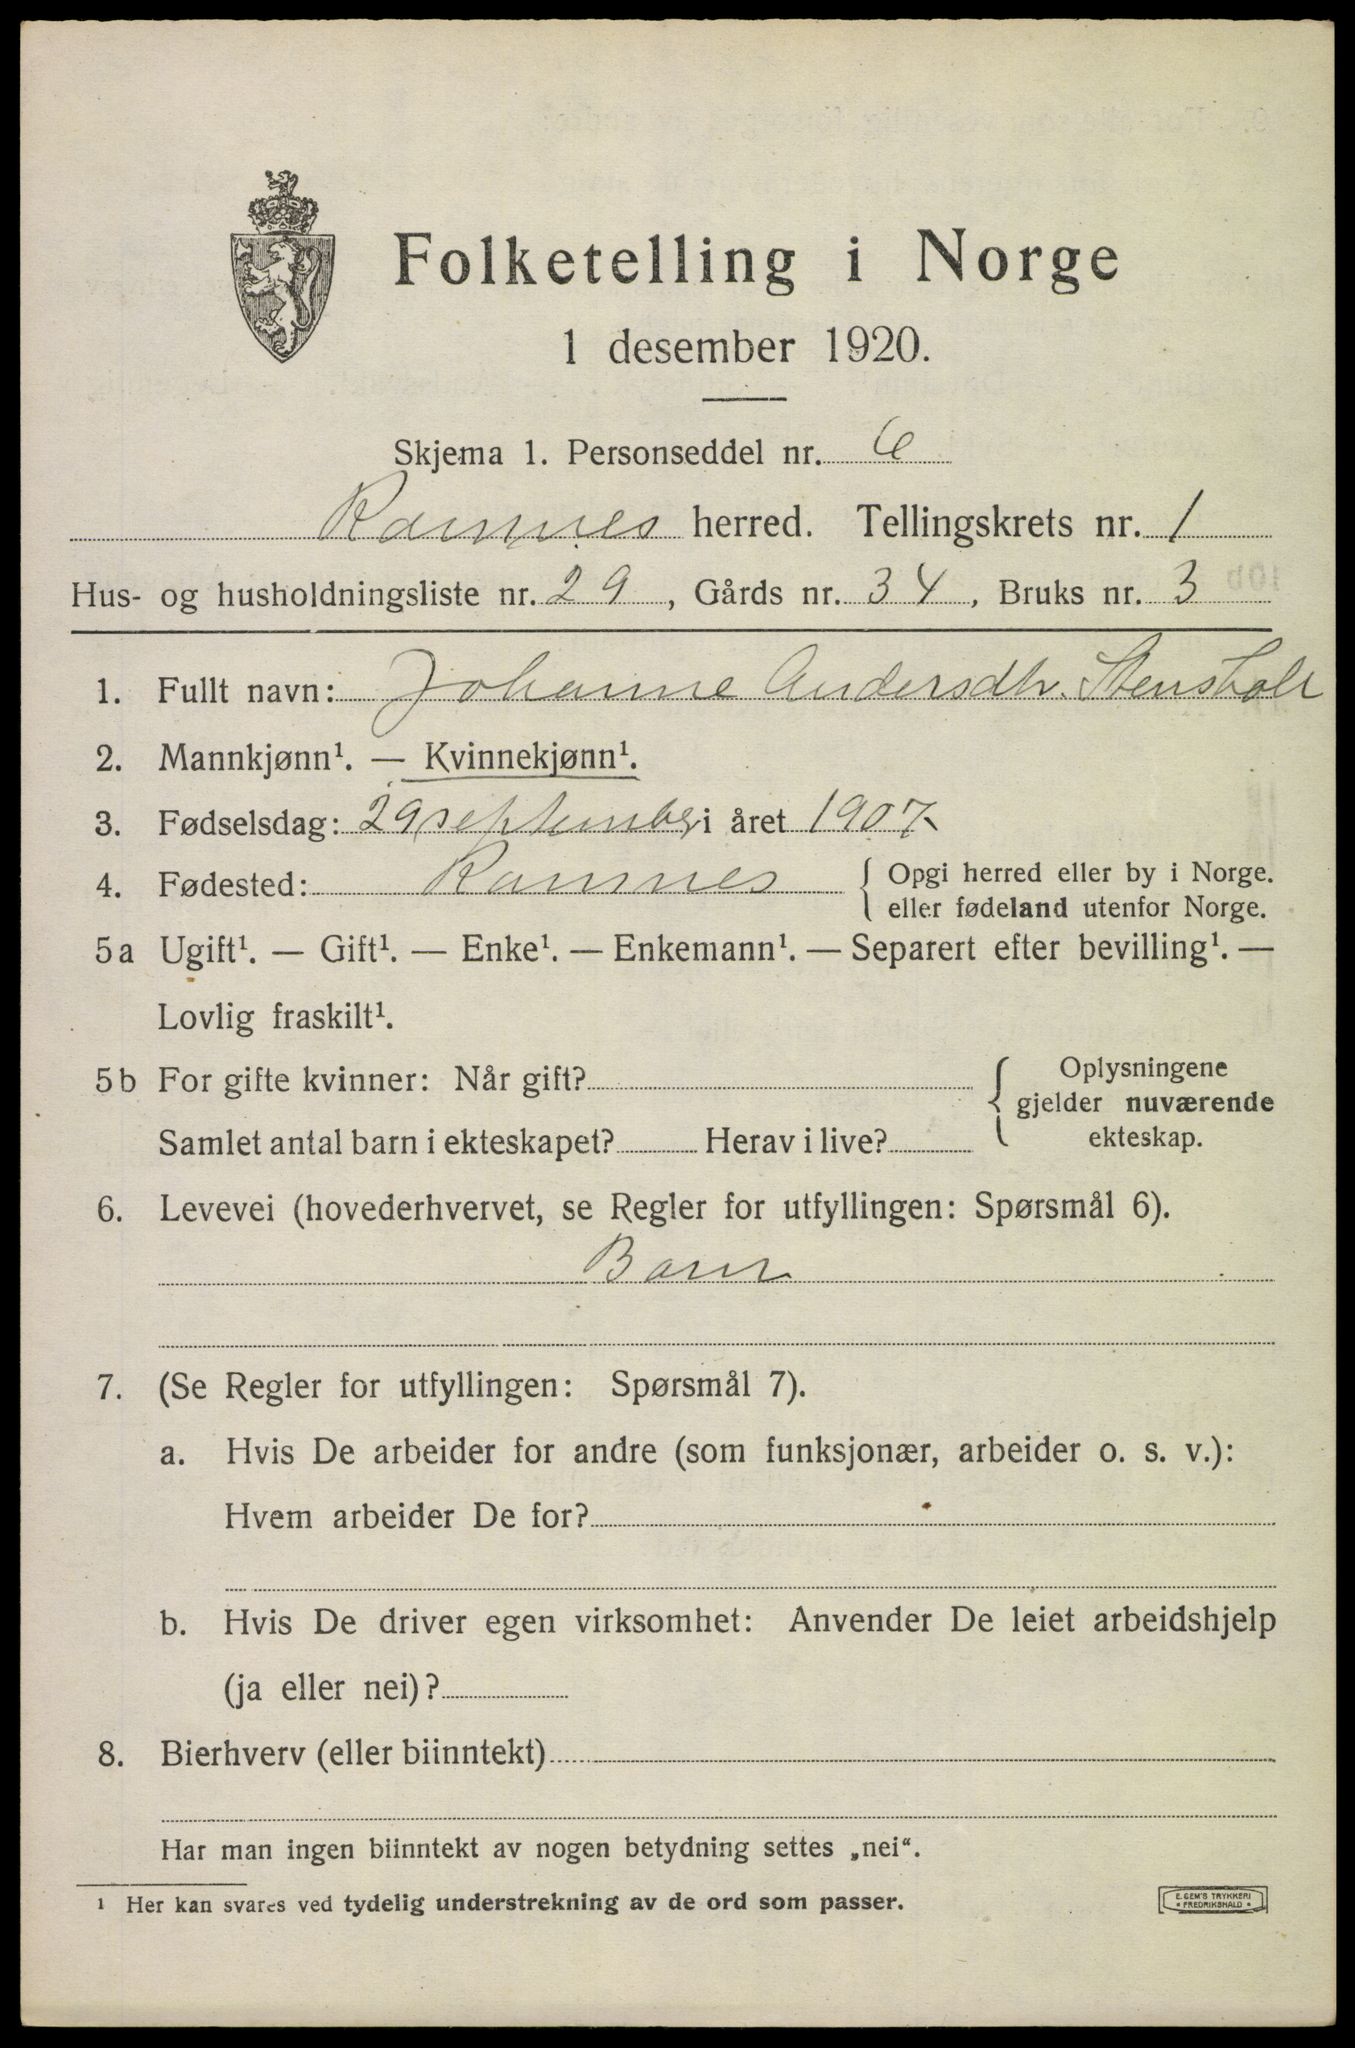 Folketelling i Norge
1 desember 1920.
Skjema 1. Personseddel nr. 6
Ramnes herred. Tellingskrets nr. 1
Hus- og husholdningsliste nr. 29, Gårds nr. 34, Bruks nr. 3
1. Fullt navn: Johanne Andersdtr. Stensholt
2. Mannkjønn¹. — Kvinnekjønn¹.
3. Fødselsdag: 29 september i året 1907
4. Fødested: Ramnes { Opgi herred eller by i Norge.
eller fødeland utenfor Norge.
5a Ugift¹. — Gift¹. — Enke¹. — Enkemann¹. — Separert efter bevilling¹. —
Lovlig fraskilt¹.
5b For gifte kvinner: Når gift?
Samlet antal barn i ekteskapet? Herav i live?
{ Oplysningene
gjelder nuværende
ekteskap.
6. Levevei (hovederhvervet, se Regler for utfyllingen: Spørsmål 6).
Barn
7. (Se Regler for utfyllingen: Spørsmål 7).
a. Hvis De arbeider for andre (som funksjonær, arbeider o. s. v.):
Hvem arbeider De for?
b. Hvis De driver egen virksomhet: Anvender De leiet arbeidshjelp
(ja eller nei)?
8. Bierhverv (eller biinntekt)
Har man ingen biinntekt av nogen betydning settes „nei“.
¹ Her kan svares ved tydelig understrekning av de ord som passer.
E. GEM'S TRYKKERI
* FREDRIKSHALD *